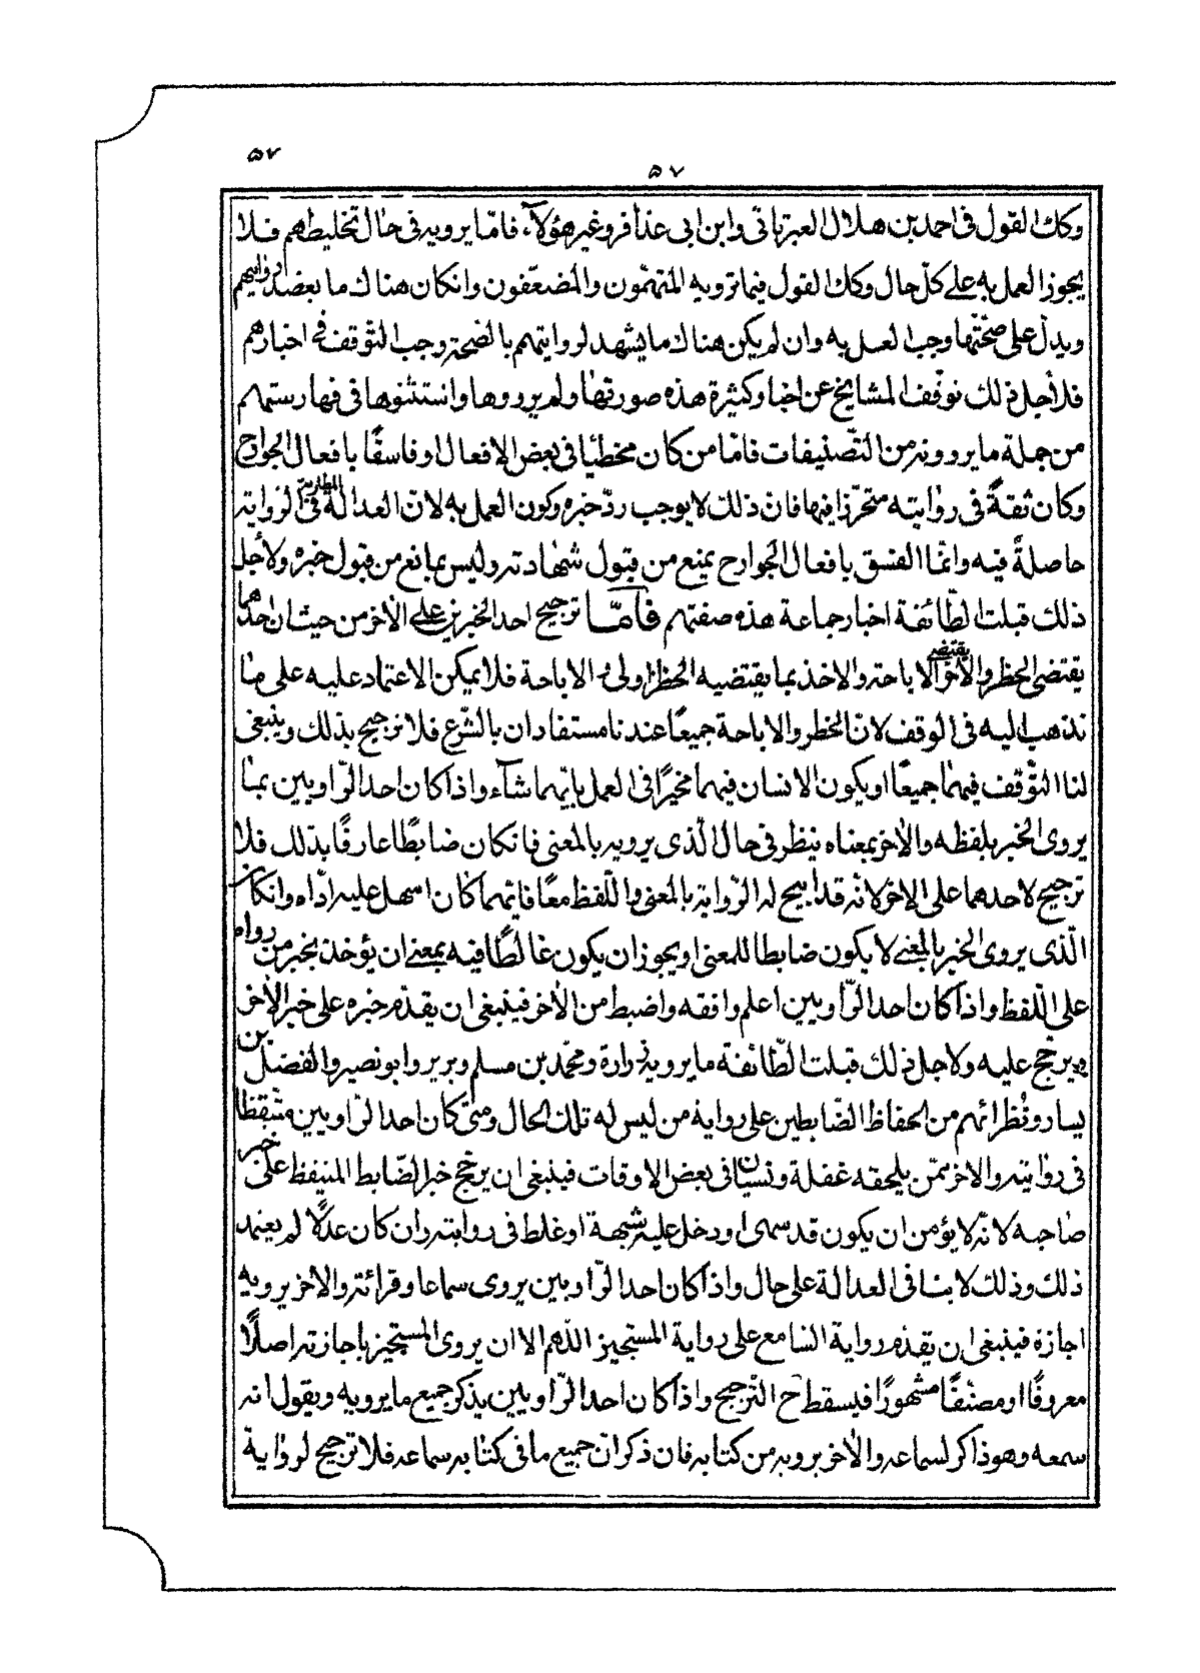 ۵۷
۵۷
وكك القول فى احمد بن هلال العبرتائى وابن ابى عذافر وغير هؤلآء، فامّا يرويه فى حال تخليطهم فلا
يجوز العمل به على كلّ حال وكك القول فيما ترويه المتهمون والمضعّفون وانكان هناك ما يعضد روايتهم
ويدلّ على صحّتها وجب العمل به وان لم يكن هناك ما يشهد لروايتهم بالصّحة وجب التّوقف فى اخبارهم
فلأجل ذلك توقّف المشايخ عن اخبار كثيرة هذه صورتها ولم يرووها واستثنوها فى فهارستهم
من جملة ما يروونه من التّصنيفات فامّا من كان مخطئا فى بعض الافعال او فاسقًا بافعال الجوارح
وكان ثقةً فى روايته متحرّزا فيها فانّ ذلك لا يوجب ردّ خبره وكون العمل به لانّ العدالة المطلوبة فى الرّواية
حاصلةً فيه وانّما الفسق بافعال الجوارح يمنع من قبول شهادته وليس بمانع من قبول خبره ولأجل
ذلك قبلت الطّائفة اخبار جماعة هذه صفتهم فأمّا ترجيح احد الخبرين على الآخر من حيث ان احدهما
يقتضى الحظر والآخر يقتضى الاباحة والاخذ بما يقتضيه الحظر اولى او الاباحة فلا يمكن الاعتماد عليه على ما
نذهب اليه فى الوقف لانّ الحظر والاباحة جميعًا عندنا مستفادان بالشّرع فلا ترجيح بذلك وينبغى
لنا التّوقف فيهما جميعًا او يكون الانسان فيهما مخيّرًا فى العمل بايّهما شآء واذا كان احد الرّاويين بما
يروى الخبر بلفظه والآخر بمعناه ينظر فى حال الّذى يرويه بالمعنى فانكان ضابطًا عارفًا بذلك فلا
ترجيح لاحدهما على الاخر لانّه قد ابيح له الرّواية بالمعنى واللّفظ معًا فايّهما كان اسهل عليه ادّاه وانكان
الّذى يروى الخبر بالمعنى لا يكون ضابطا للمعنى او يجوز ان يكون غالطًا فيه بمعنى ان يؤخذ بخبر من رواه
على اللّفظ واذا كان احد الرّاويين اعلم وافقه واضبط من الآخر فينبغى ان يقدّم خبره على خبر الآخر
ويرجّح عليه ولاجل ذلك قبلت الطّائفة ما يرويه زرارة ومحمّد بن مسلم وبرير وابو نصير والفضل بن
يسار ونُظرائهم من الحفاظ الضّابطين على رواية من ليس له تلك الحال ومتى كان احد الرّاويين متيقظا
فى روايته والاخر ممّن يلحقه غفلة ونسيان فى بعض الاوقات فينبغى ان يرجّح خبر الضّابط المتيقظ على خبر
صاحبه لانّه لا يؤمن ان يكون قد سهى او دخل عليه شبهة او غلط فى روايته وان كان عدلًا لم يعتمد
ذلك وذلك لا ينافى العدالة على حال واذا كان احد الرّاويين يروى سماعا وقرائة والآخر يرويه
اجازة فينبغى ان يقدّم رواية السّامع على رواية المستجيز اللّهم الا ان يروى المستجيز باجازته اصلًا
معروفًا او مصنّفًا مشهورًا فيسقط ح التّرجيح واذا كان احد الرّاويين يذكر جميع ما يرويه ويقول انه
سمعه وهو ذاكر لسماعه والآخر يرويه من كتابه فان ذكر انّ جميع ما فى كتابه سماعه فلا ترجيح لرواية